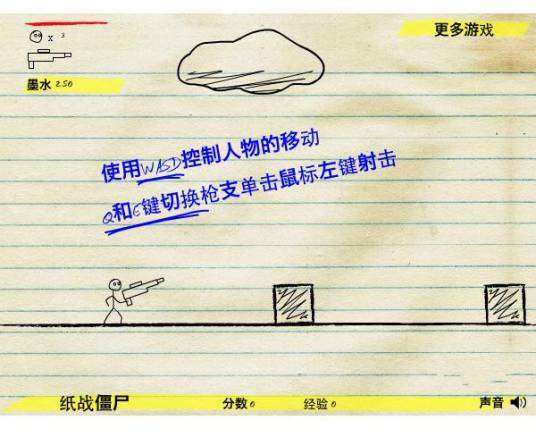 更多游戏
x 3
墨水 250
使用WASD控制人物的移动
Q和E键切换枪支单击鼠标左键射击
纸战僵尸 分数0 经验0 声音